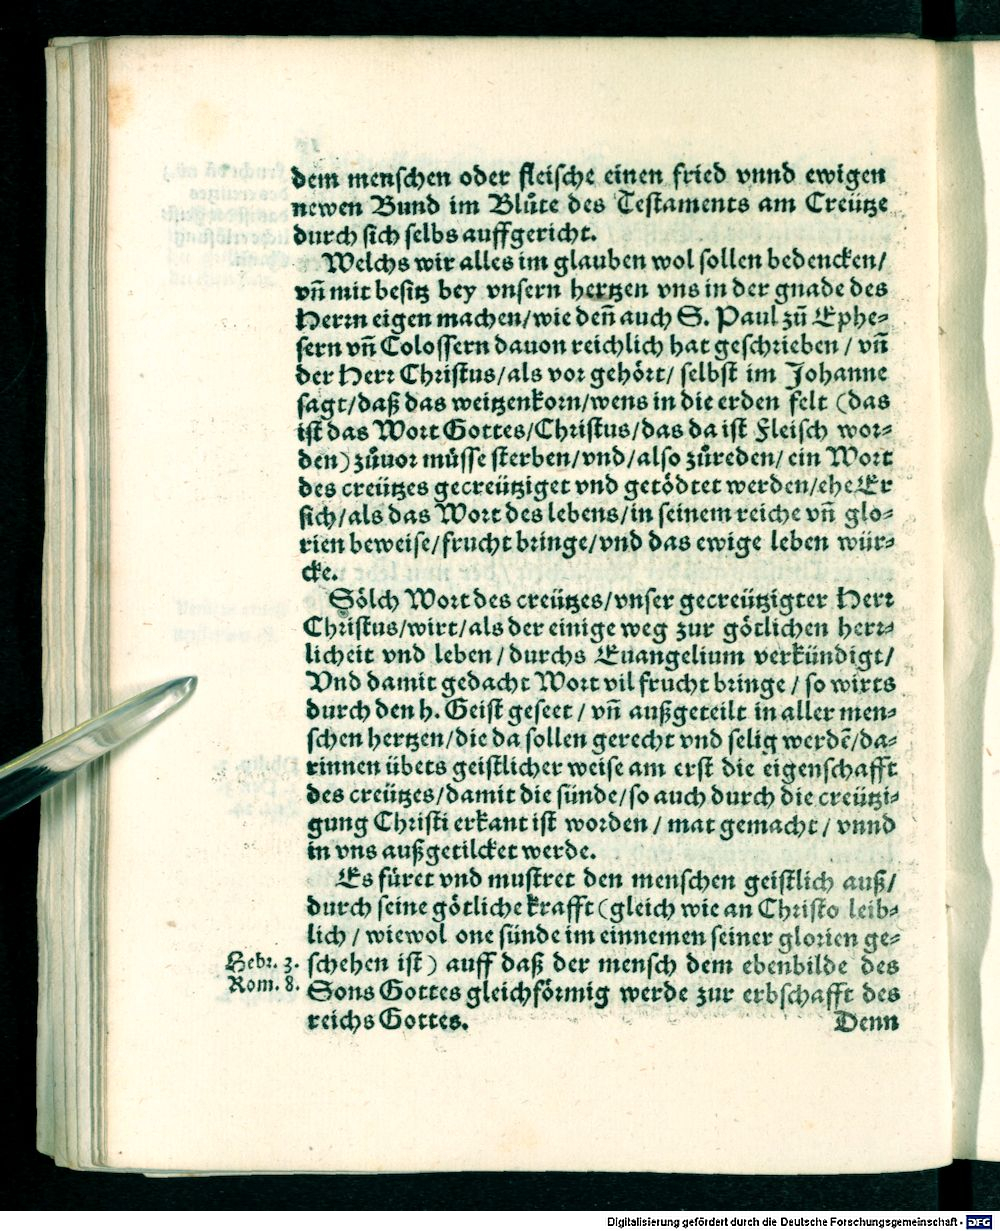 dem menschen oder fleische einen fried vnnd ewigen
newen Bund im Blůte des Testaments am Creütze
durch sich selbs auffgericht.
Welchs wir alles im glauben wol sollen bedencken/
vñ mit besitz bey vnsern hertzen vns in der gnade des
Herrn eigen machen/wie deñ auch S. Paul zů Ephe-
sern vñ Colossern dauon reichlich hat geschrieben / vñ
der Herr Christus/als vor gehört/ selbst im Johanne
sagt/daß das weitzenkorn/wens in die erden felt (das
ist das Wort Gottes/Christus/das da ist Fleisch wor-
den) zůuor müsse sterben/vnd/also zůreden/ ein Wort
des creützes gecreütziget vnd getödtet werden/ehe Er
sich/als das Wort des lebens/in seinem reiche vñ glo-
rien beweise/frucht bringe/vnd das ewige leben wür-
cke.
Sölch Wort des creützes/vnser gecreützigter Herr
Christus/wirt/als der einige weg zur götlichen herr-
licheit vnd leben/durchs Euangelium verkündigt/
Vnd damit gedacht Wort vil frucht bringe / so wirts
durch den h. Geist geseet / vñ außgeteilt in aller men-
schen hertzen/die da sollen gerecht vnd selig werdē/da-
rinnen übets geistlicher weise am erst die eigenschafft
des creützes/damit die sünde/so auch durch die creützi-
gung Christi erkant ist worden / mat gemacht / vnnd
in vns außgetilcket werde.
Es füret vnd mustret den menschen geistlich auß/
durch seine götliche krafft (gleich wie an Christo leib-
lich / wiewol one sünde im einnemen seiner glorien ge-
Hebr. 3. schehen ist) auff daß der mensch dem ebenbilde des
Rom. 8. Sons Gottes gleichförmig werde zur erbschafft des
reichs Gottes. Denn
Digitalisierung gefördert durch die Deutsche Forschungsgemeinschaft - DFG